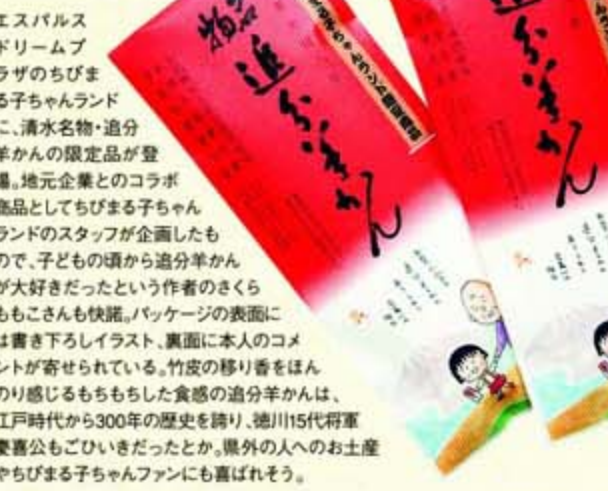 エスパルス
ドリームプ
ラザのちびま
る子ちゃんランド
に、清水名物・追分
羊かんの限定品が登
場。地元企業とのコラボ
商品としてちびまる子ちゃん
ランドのスタッフが企画したも
ので、子どもの頃から追分羊かん
が大好きだったという作者のさくら
ももこさんも快諾。パッケージの表面に
は書き下ろしイラスト、裏面に本人のコメ
ントが寄せられている。竹皮の移り香をほん
のり感じるもちもちした食感の追分羊かんは、
江戸時代から300年の歴史を誇り、徳川15代将軍
慶喜公もごひいきだったとか。県外の人へのお土産
やちびまる子ちゃんファンにも喜ばれそう。
追分羊かん